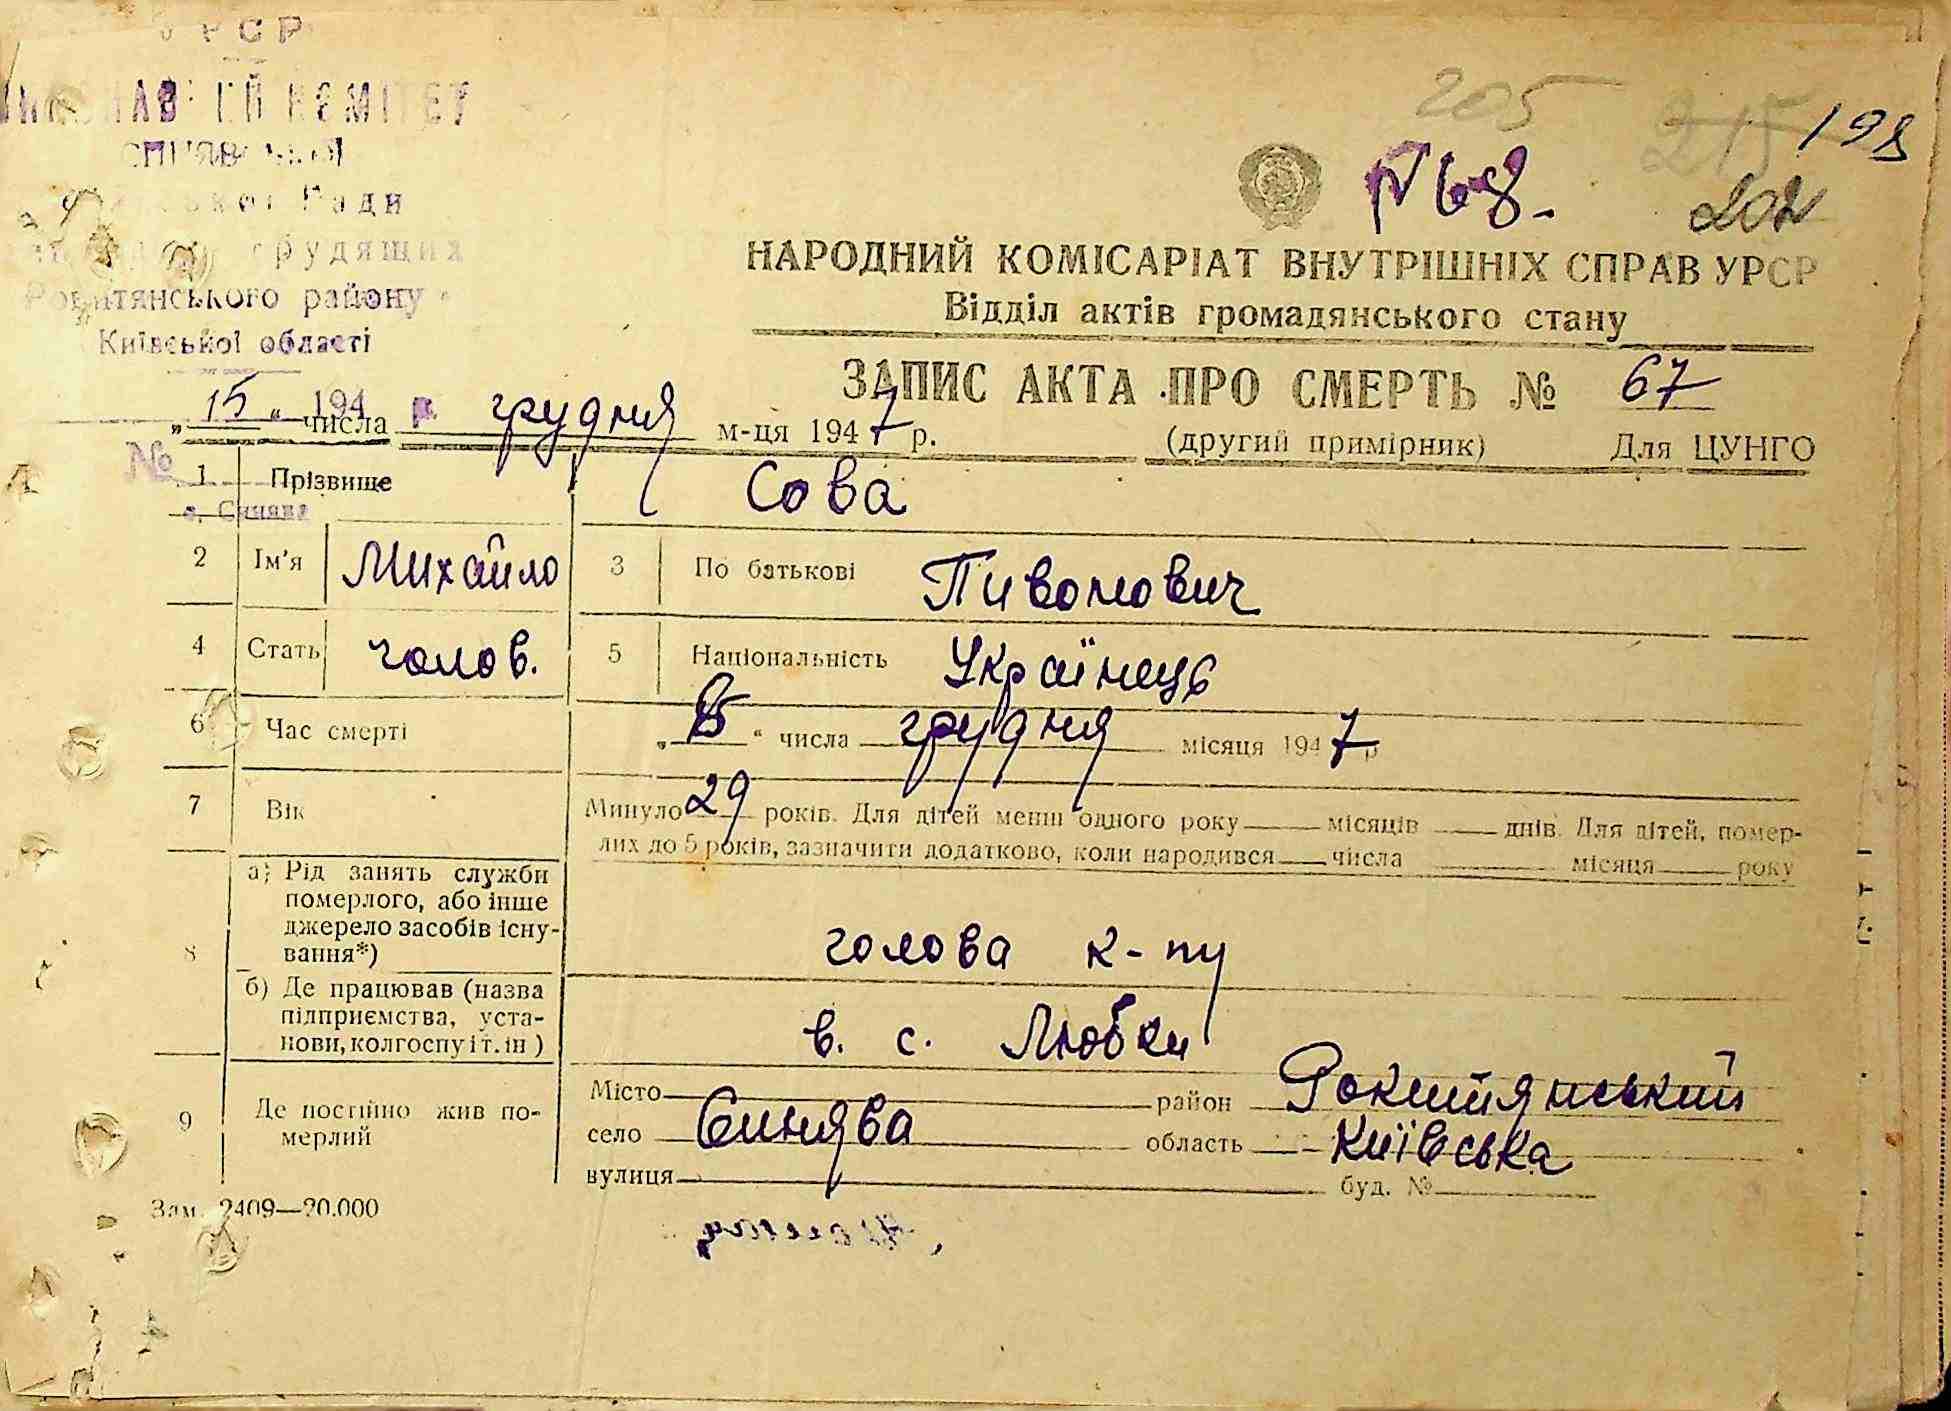 УРСР
ВИКОНАВЧИЙ КОМІТЕТ
СИНЯВСЬКОЇ
Сільської Ради
трудящих
Рокитянського району
Київської області
194 р.
№
с. Синява
205
215
198
202
№ 68.
НАРОДНИЙ КОМІСАРІАТ ВНУТРІШНІХ СПРАВ УРСР
Відділ актів громадянського стану
ЗАПИС АКТА ПРО СМЕРТЬ № 67
„15“ числа грудня м-ця 1947 р. (другий примірник) Для ЦУНГО
1 Прізвище Сова
2 Ім'я Михайло 3 По батькові Пивонович
4 Стать чолов. 5 Національність Українець
6 Час смерті „15“ числа грудня місяця 1947 р
7 Вік Минуло 29 років. Для дітей менш одного року місяців днів. Для дітей, помер-
лих до 5 років, зазначити додатково, коли народився числа місяця року
8 а) Рід занять служби
померлого, або інше
джерело засобів існу-
вання*) голова к-пу
б) Де працював (назва
підприємства, уста-
нови, колгоспу і т. ін) в. с. Любки
9 Де постійно жив по-
мерлий
Місто район Рокитянський
село Синява область Київська
вулиця буд. №
Зам. 2409—20.000